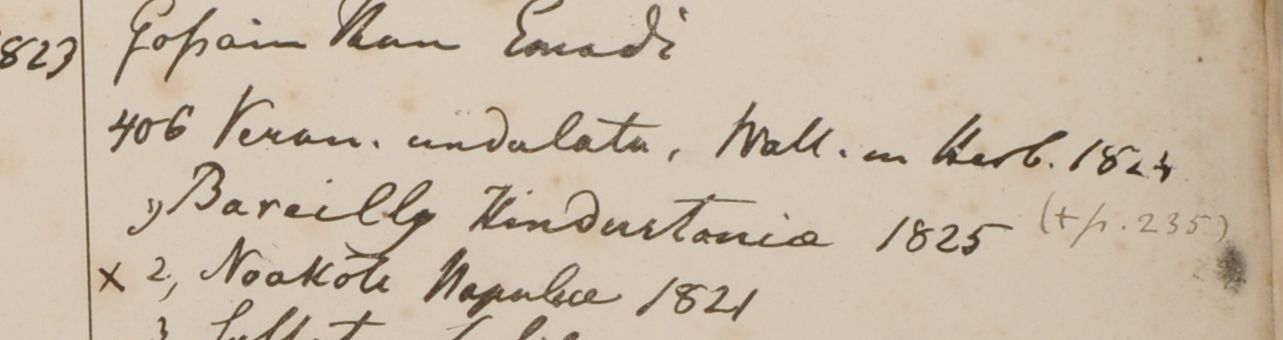 823 Gossain Than Emodi
406 Veron. undulata, Wall. in Herb. 1824
1, Bareilly Hindustaniae 1825 (+ p. 235)
x 2, Noakôte Napaliae 1821
3